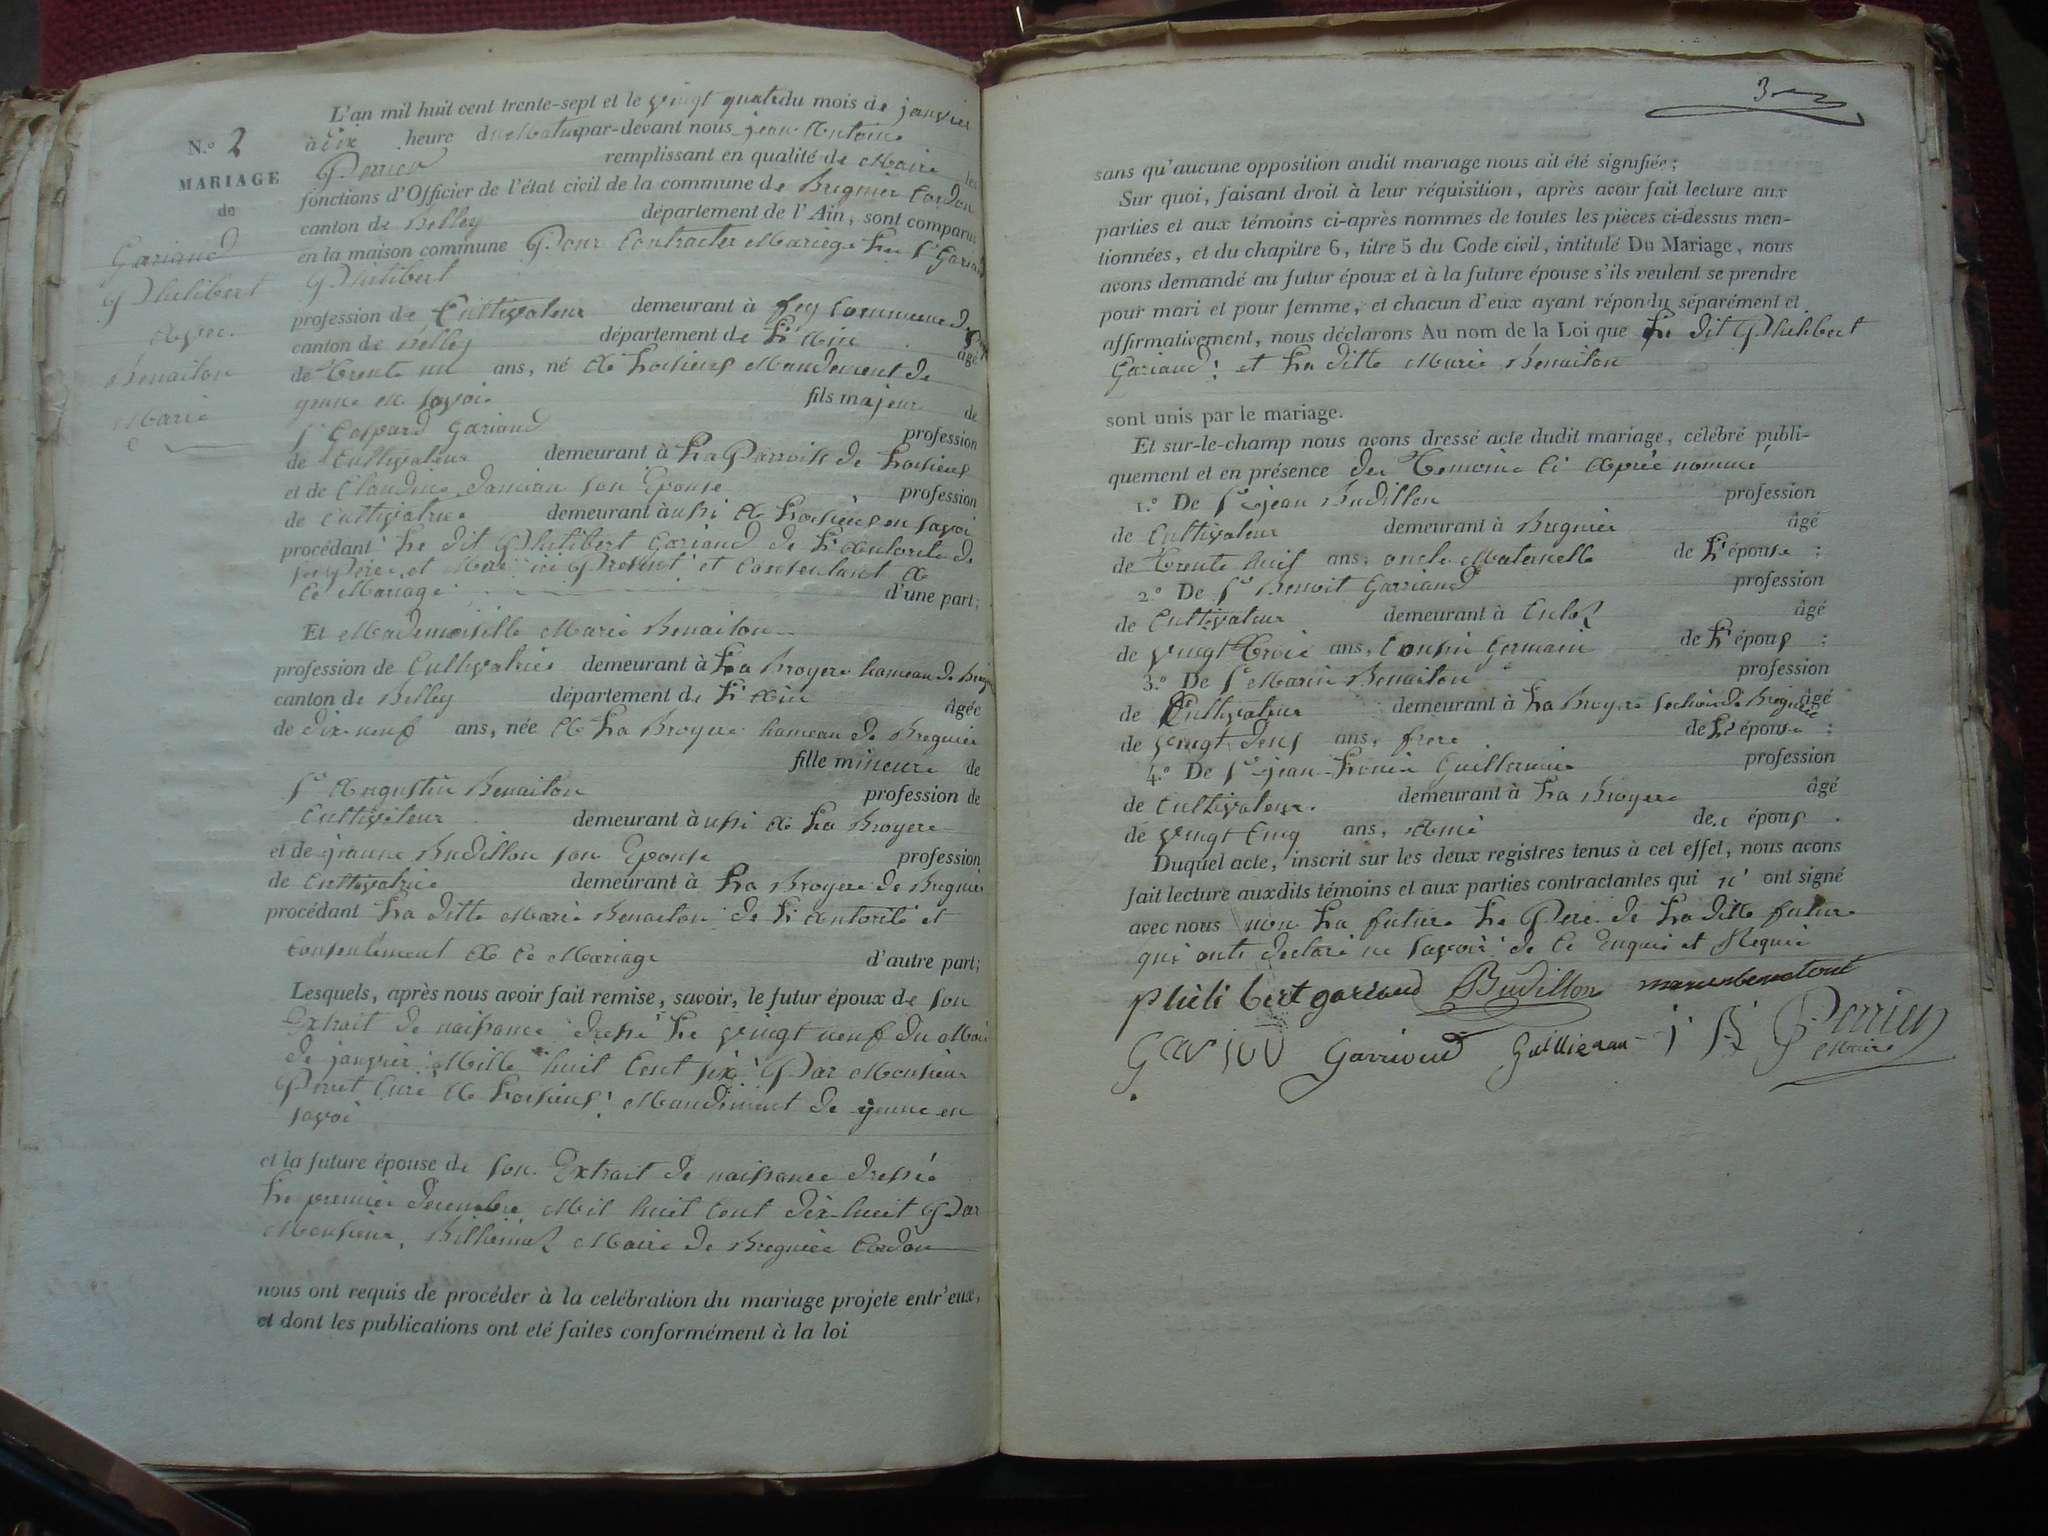 N.o 2
MARIAGE
de
Gariaud
Philibert
avec
Benaiton
Marie
L'an mil huit cent trente-sept et le vingt quatre du mois de janvier
à dix heure du Matin par-devant nous jean Antoine
Perrier remplissant en qualité de Maire les
fonctions d'Officier de l'état civil de la commune de Bregnier Cordon
canton de Belley département de l'Ain, sont comparus
en la maison commune Pour Contracter Mariege Le Sr Gariaud
Philibert
profession de Cultivateur demeurant à fey Commune de
canton de Belley département de L'Ain âgé
de Trente un ans, né à Loisieux Mandement de
yenne en Savoie fils majeur de
Sr Gaspard Gariaud profession
de Cultivateur demeurant à La Parroisse de Loisieux
et de Claudine Damian son Epouse profession
de Cultivatrice demeurant à ussi à Loisieux en Savoi
procédant Le dit Philibert Gariaud de L'Autorite de
ses Père et Mère ici Present et Consentant à
Ce Mariage d'une part;
Et Mademoiselle Marie Benaiton
profession de Cultivatrice demeurant à La Broyere hameau de Bregnier
canton de Belley département de L'Ain âgée
de dix neuf ans, née à La Broyere hameau de Bregnier
fille mineure de
Sr Augustin Benaiton profession de
Cultivateur demeurant à ussi à La Broyere
et de jeanne Budillon son Epouse profession
de Cultivatrice demeurant à La Broyere de Bregnier
procédant La ditte Marie Benaiton de L'Autorité et
Consentement à Ce Mariage d'autre part;
Lesquels, après nous avoir fait remise, savoir, le futur époux de son
Extrait de naissance dressé Le vingt neuf du Moi
de janvier Mille huit Cent six Par Monsieur
Perret Curé à Loisieux Mandement de yenne en
Savoi
et la future épouse de son Extrait de naissance dressée
Le premier décembre Mil huit Cent dix huit Par
Monsieur Billiemaz Maire de Bregnier Cordon
nous ont requis de procéder à la celébration du mariage projete entr'eux,
et dont les publications ont eté faites conformément à la loi
3
sans qu'aucune opposition audit mariage nous ait été signifiée;
Sur quoi, faisant droit à leur réquisition, après avoir fait lecture aux
parties et aux témoins ci-après nommés de toutes les pièces ci-dessus men-
tionnées, et du chapitre 6, titre 5 du Code civil, intitulé Du Mariage, nous
avons demandé au futur époux et à la future épouse s'ils veulent se prendre
pour mari et pour femme, et chacun d'eux ayant répondu séparément et
affirmativement, nous déclarons Au nom de la Loi que Le dit Philibert
Gariaud; et La ditte Marie Benaiton
sont unis par le mariage.
Et sur-le-champ nous avons dressé acte dudit mariage, célébré publi-
quement et en présence des Temoins Ci Après nommé
1.o De Sr jean Budillon profession
de Cultivateur demeurant à Bregnier âgé
de Trente huit ans, oncle Maternelle de L'épouse;
2.o De Sr Benoit Garriaud profession
de Cultivateur demeurant à Culoz âgé
de vingt Trois ans, Cousin Germain de L'époux;
3.o De Sr Marin Benaiton profession
de Cultivateur demeurant à La Broyere section de Bregnier âgé
de vingt deux ans, frere de L'épouse;
4.o De Sr jean Louis Guillermin profession
de Cultivateur. demeurant à La Broyere âgé
de vingt Cinq ans, Amie des époux.
Duquel acte, inscrit sur les deux registres tenus à cet effet, nous avons
fait lecture auxdits témoins et aux parties contractantes qui n' ont signé
avec nous non La future Le Pere de La ditte future
qui onts declaré ne savoir de Ce Enquis et Requis
philibert gariaud Budillon marinbenetont
Garrioud J A Perrier
Maire